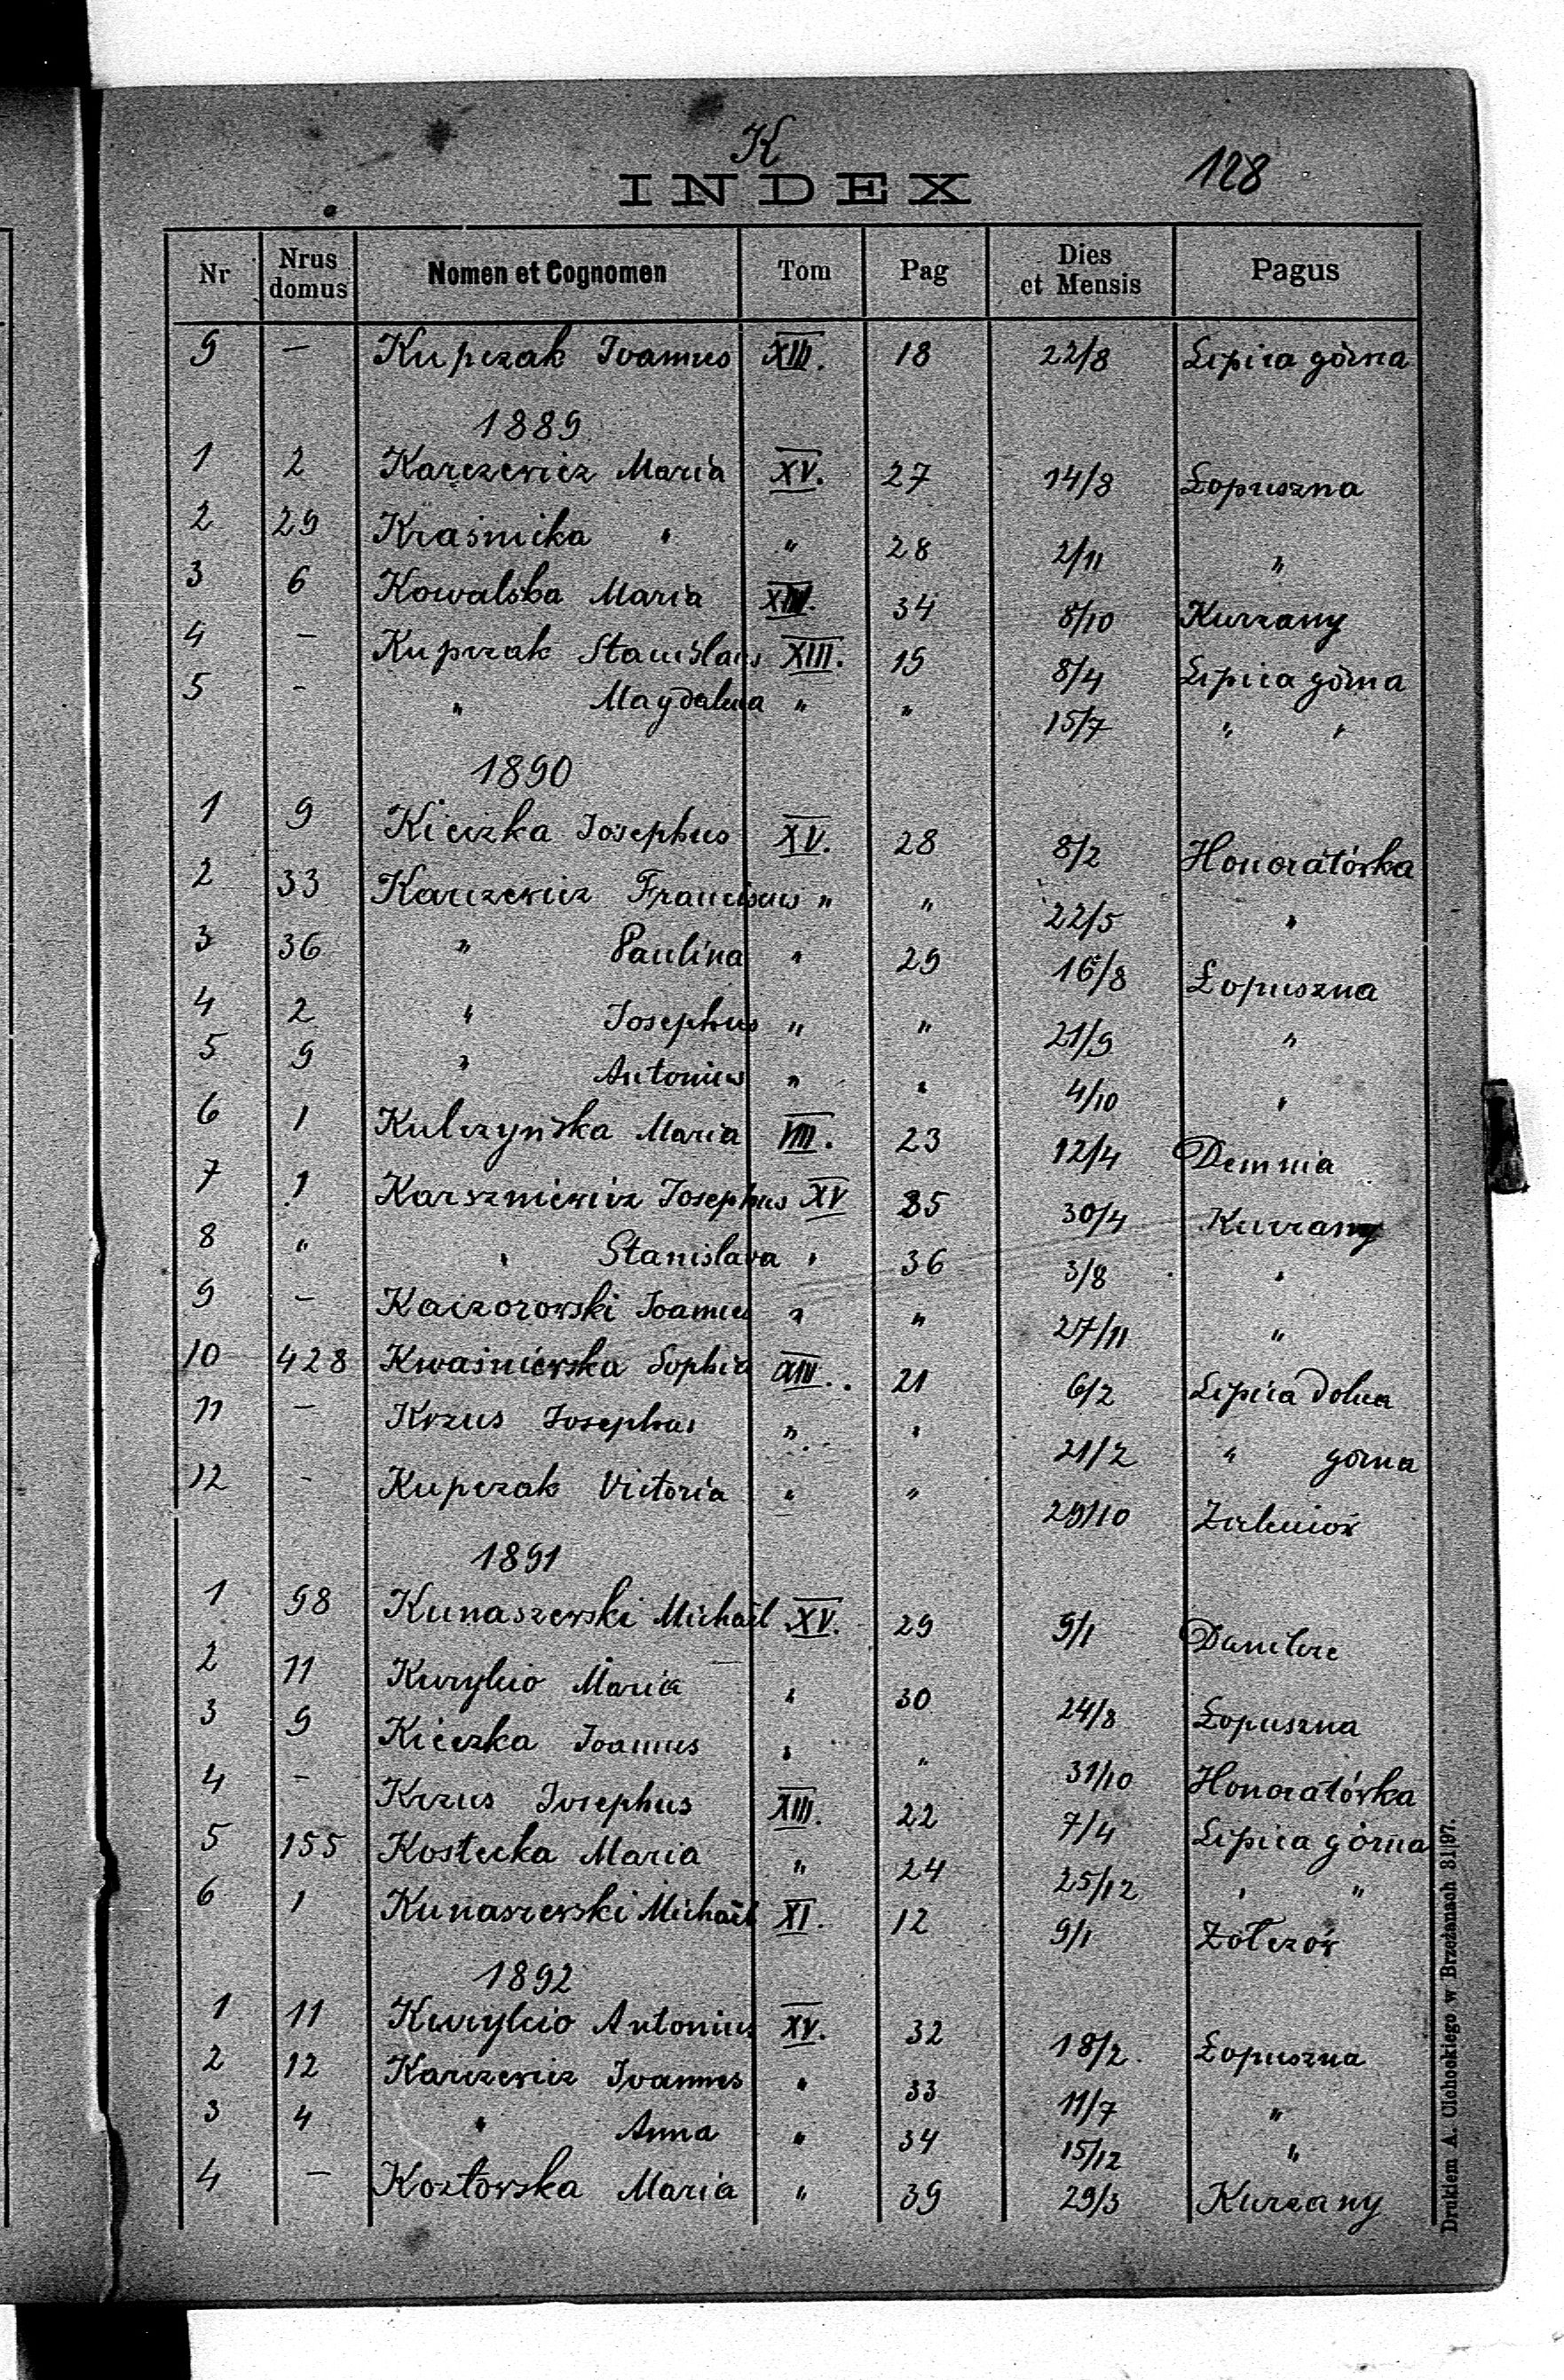 K
INDEX 128
Nr Nrus domus Nomen et Cognomen Tom Pag Dies et Mensis Pagus
9 — Kupczak Joannes XIII. 18 22/8 Lipica górna
1889
1 2 Karczewicz Maria XV. 27 14/8 Łopuszna
2 29 Kraśnicka " " 28 2/11 "
3 6 Kowalska Maria 34 8/10 Kurzany
4 — Kupczak Stanislaus XIII. 19 8/4 Lipica górna
5 - " Magdalena " " 15/7 " "
1890
1 9 Kiczka Josephus XV. 28 8/2 Honoratówka
2 33 Karczewicz Franciscus " " 22/5 "
3 36 " Paulina " 29 16/8 Łopuszna
4 2 " Josephus " " 21/9 "
5 9 " Antonius " " 4/10 "
6 1 Kulczyńska Maria VIII. 23 12/4 Demnia
7 1 Karszniewicz Josephus XV 35 30/4 Kurzany
8 " " Stanislava " 36 3/8 "
9 — Kaczorowski Joannes " " 27/11 "
10 428 Kwaśniewska Sophia XIII. 21 6/2 Lipica dolna
11 — Krzus Josephus " " 21/2 " górna
12 - Kupczak Victoria " " 29/10 Zieleniów
1891
1 98 Kunaszewski Michaël XV. 29 9/1 Danilcze
2 11 Kuryłcio Maria " 30 24/8 Łopuszna
3 9 Kiczka Joannes " " 31/10 Honoratówka
4 — Krzus Josephus XIII. 22 7/4 Lipica górna
5 155 Kostecka Maria " 24 25/12 " "
6 1 Kunaszewski Michaël XI. 12 9/1 Żołczów
1892
1 11 Kuryłcio Antonius XV. 32 18/2. Łopuszna
2 12 Karczewicz Joannes " 33 11/7 "
3 4 " Anna " 34 15/12 "
4 — Kozłowska Maria " 39 29/3 Kurzany
Drukiem A. Cichockiego w Brzeżanach 31|97.